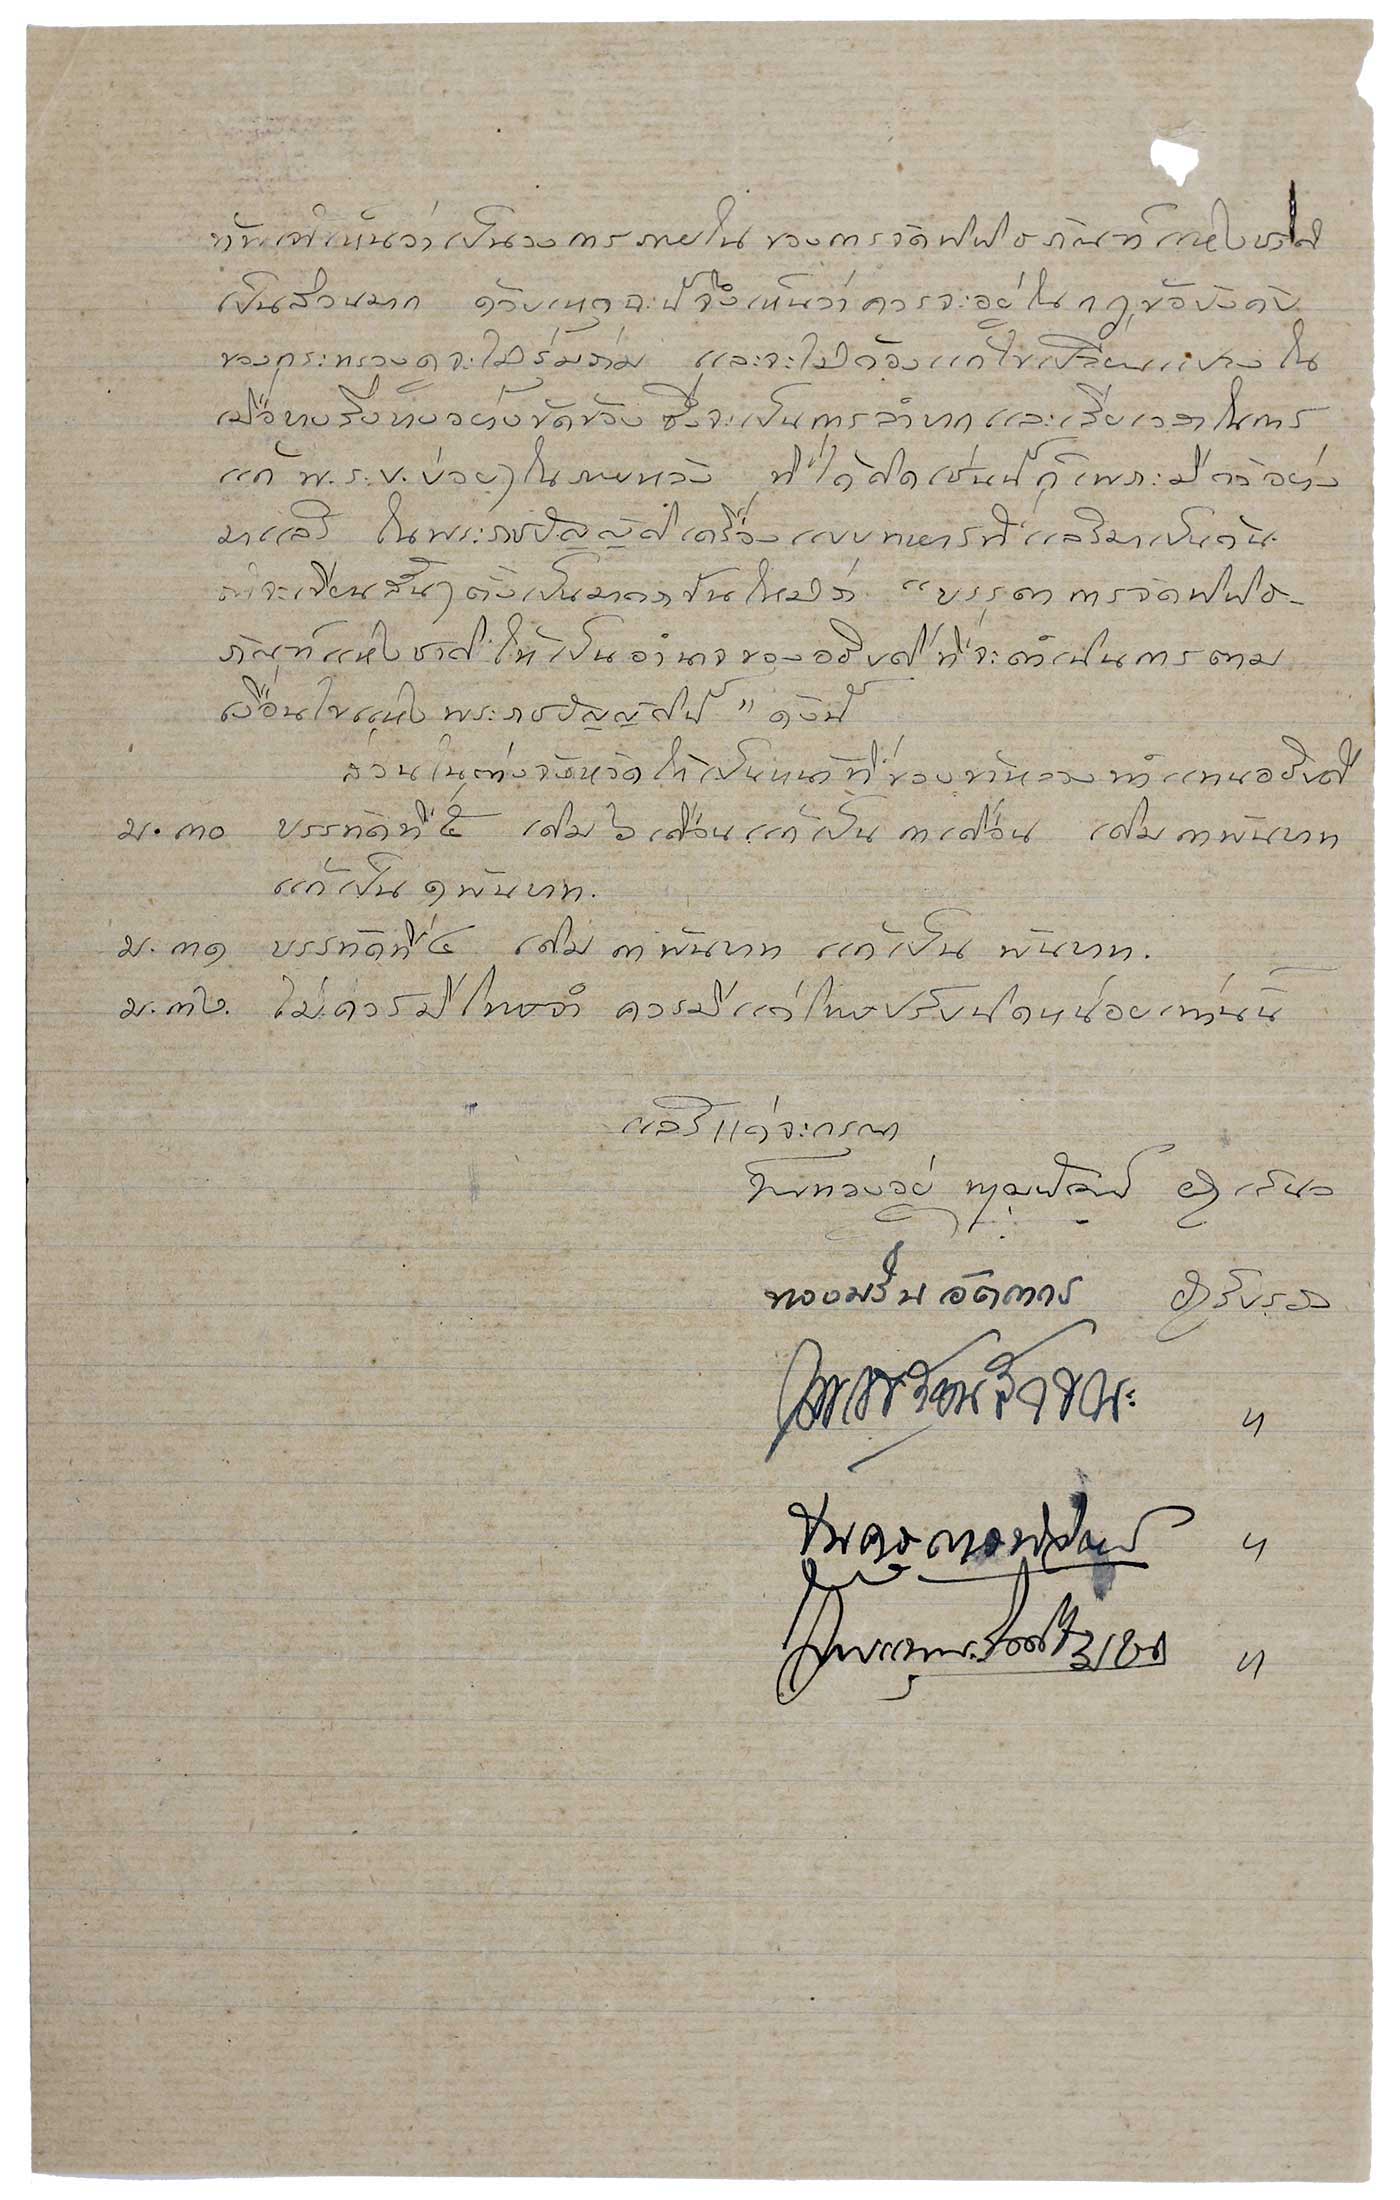 เห็นว่าเป็นวงการภายใน ของการจัดพิพิธภัณฑ์แห่งชาติ
เป็นส่วนมาก ด้วยเหตุฉะนี้จึงเห็นว่าควรจะอยู่ในกฎข้อบังคับ
ของกระทรวงดูจะไม่รุ่มร่าม และจะไม่ต้องแก้ไขเปลี่ยนแปลงใน
เมื่อบางสิ่งบางอย่างขัดข้อง ซึ่งจะเป็นการลำบากและเสียเวลาในการ
แก้ พ.ร.บ. บ่อยๆในภายหลัง ที่ได้คิดเช่นนี้ก็เพราะมีตัวอย่าง
มาแล้ว ในพระราชบัญญัติเครื่องแบบทหารที่แล้วมาเป็นต้น
จะเขียนสั้นๆตั้งเป็นมาตราขึ้นใหม่ว่า "บรรดาการจัดพิพิธ-
ภัณฑ์แห่งชาติให้เป็นอำนาจของอธิบดีที่จะดำเนินการตาม
เงื่อนไขแห่งพระราชบัญญัตินี้" ดังนี้
ส่วนในต่างจังหวัดให้เป็นหน้าที่ของข้าหลวงทำแทนอธิบดี
ม. ๓๐ บรรทัดที่ ๕ เดิม ๖ เดือนแก้เป็น ๓ เดือน เดิม ๓ พันบาท
แก้เป็น ๑ พันบาท.
ม. ๓๑ บรรทัดที่ ๔ เดิม ๓ พันบาท แก้เป็น พันบาท.
ม. ๓๒. ไม่ควรมีโทษจำ ควรมีแต่โทษปรับนิดหน่อยเท่านั้น
แล้วแต่จะกรุณา
ผู้เสนอ
ผู้รับรอง
"
"
"